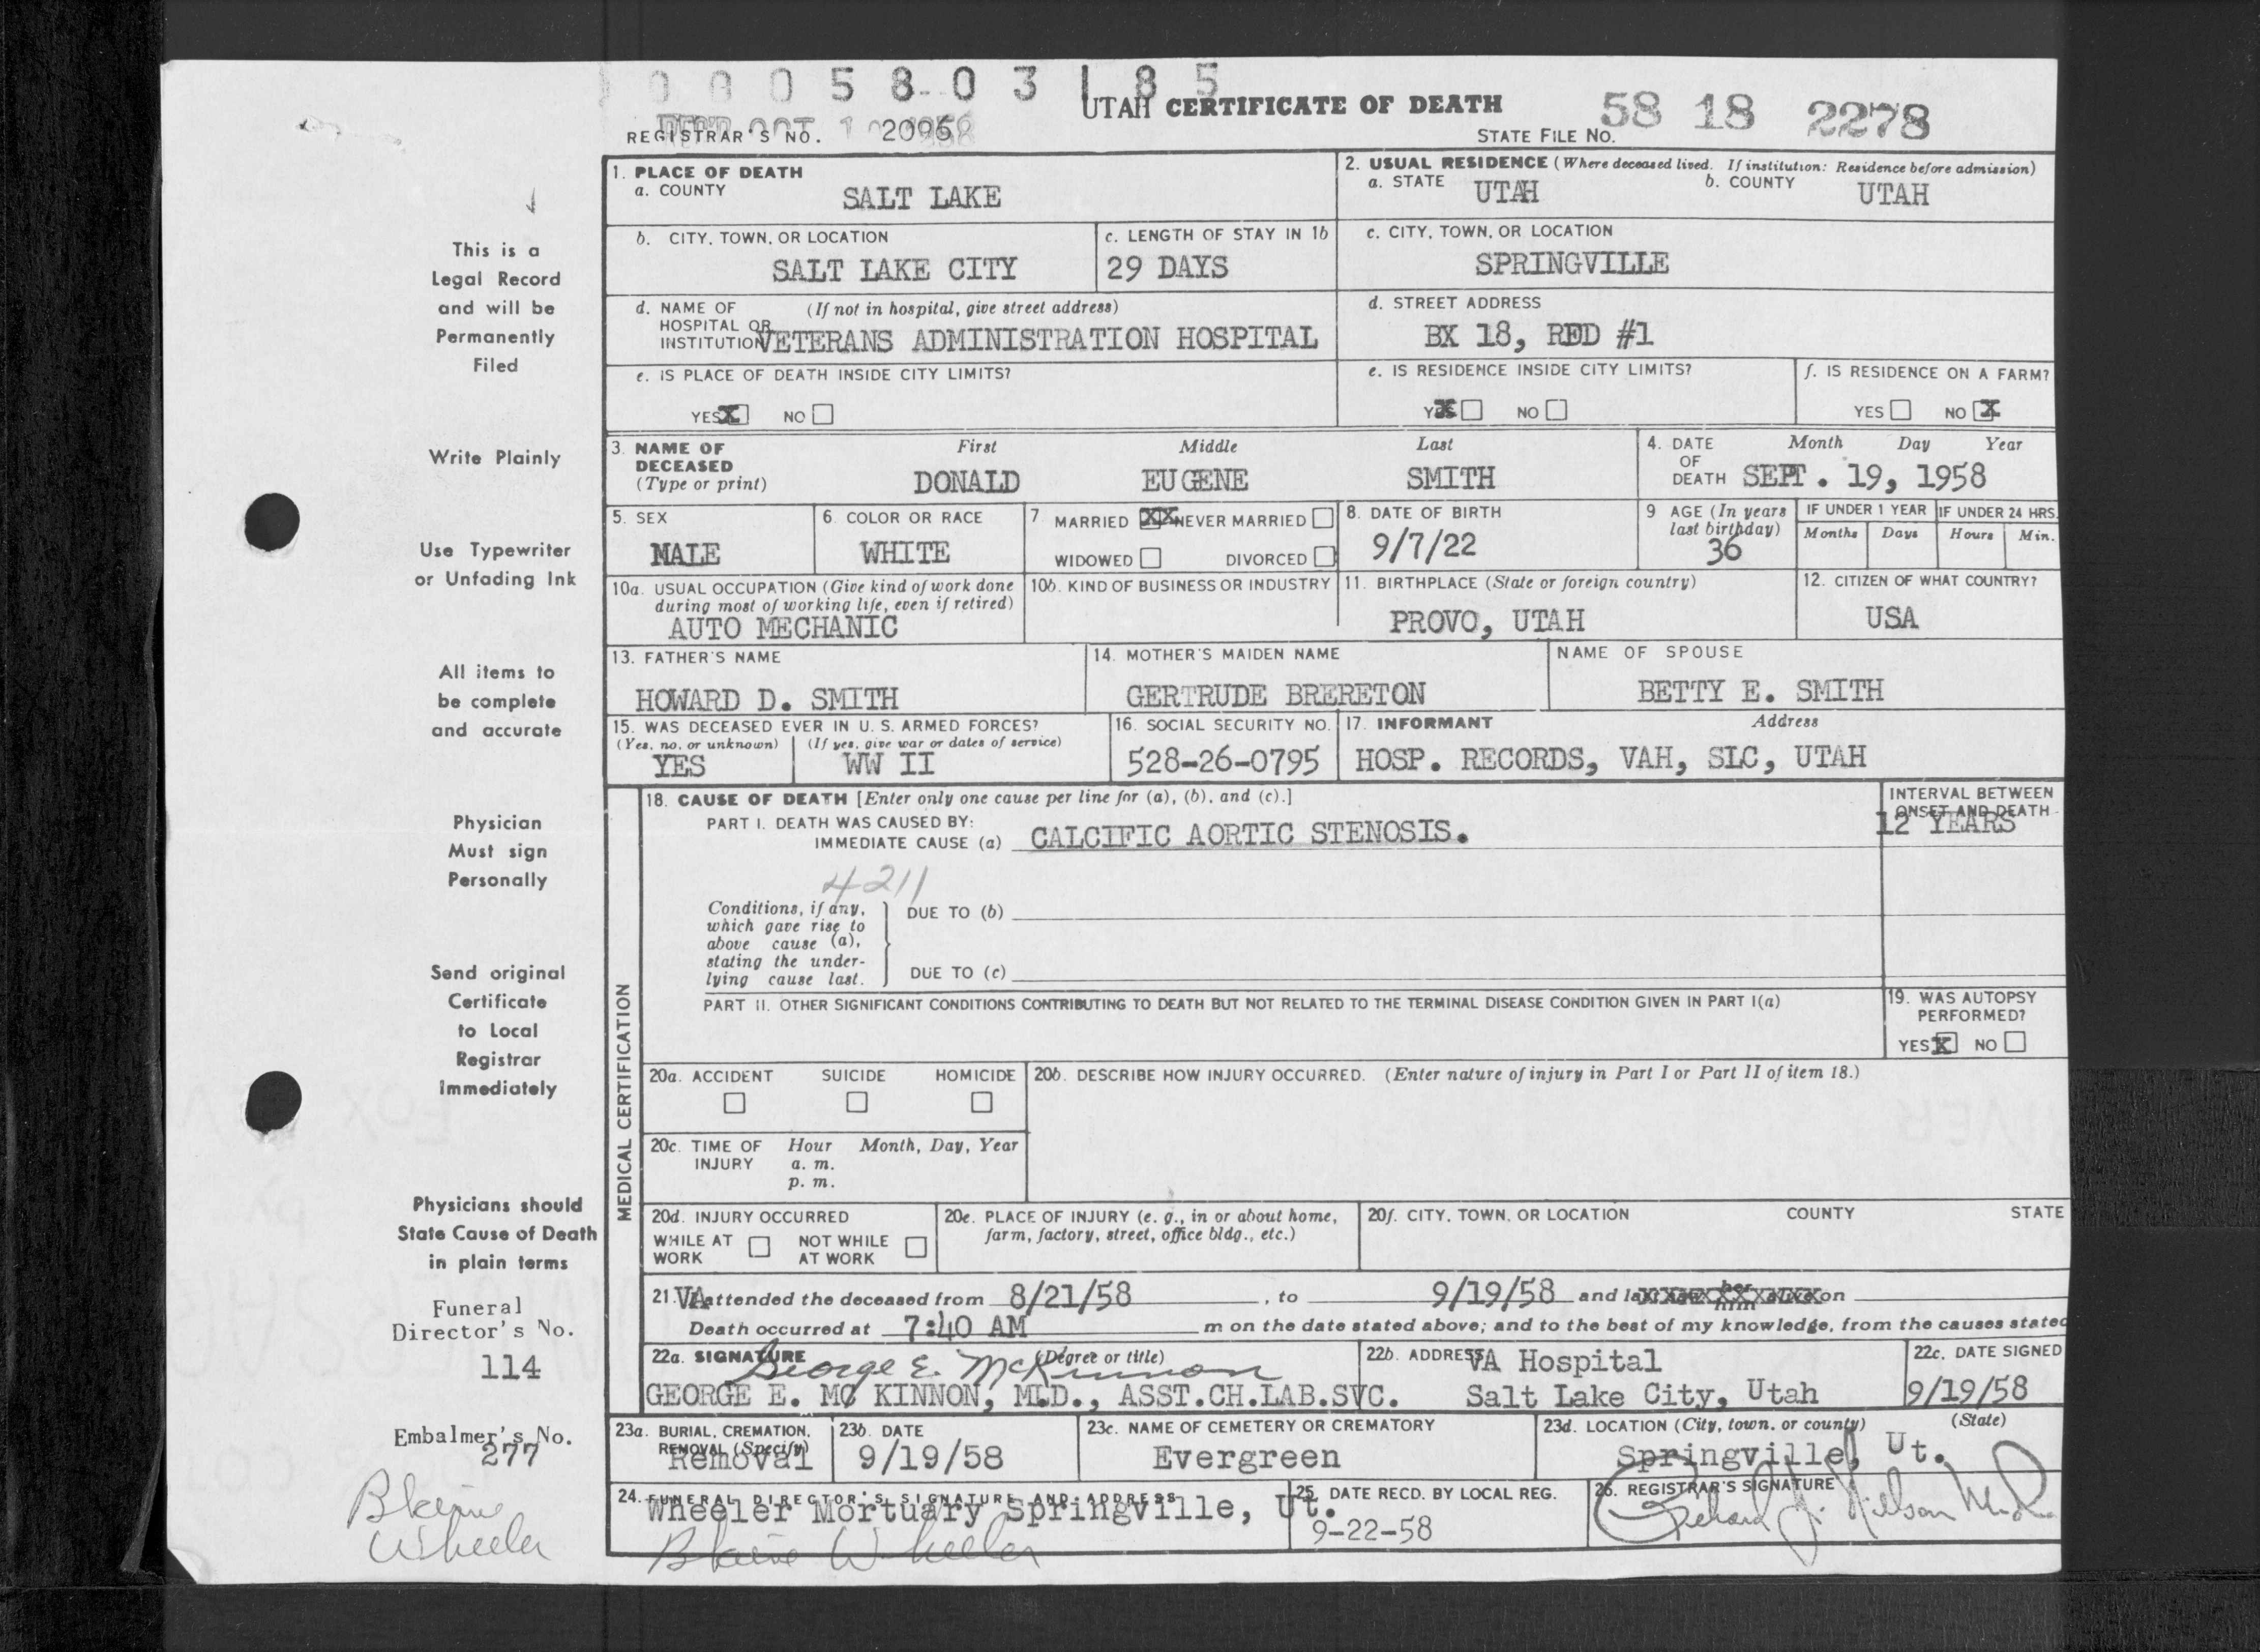 0 0 0 5 8 0 3 1 8 5
UTAH CERTIFICATE OF DEATH
58 18 2278
REGISTRAR'S NO. 2096
STATE FILE NO.
This is a
Legal Record
and will be
Permanently
Filed
Write Plainly
Use Typewriter
or Unfading Ink
All items to
be complete
and accurate
Physician
Must sign
Personally
Send original
Certificate
to Local
Registrar
Immediately
Physicians should
State Cause of Death
in plain terms
Funeral
Director's No.
114
Embalmer's No.
277
Blaine
Wheeler
1. PLACE OF DEATH
a. COUNTY SALT LAKE
2. USUAL RESIDENCE (Where deceased lived. If institution: Residence before admission)
a. STATE UTAH b. COUNTY UTAH
b. CITY, TOWN, OR LOCATION
SALT LAKE CITY
c. LENGTH OF STAY IN 1b
29 DAYS
c. CITY, TOWN, OR LOCATION
SPRINGVILLE
d. NAME OF (If not in hospital, give street address)
HOSPITAL OR
INSTITUTION VETERANS ADMINISTRATION HOSPITAL
d. STREET ADDRESS
BX 18, RFD #1
e. IS PLACE OF DEATH INSIDE CITY LIMITS?
YES X NO
e. IS RESIDENCE INSIDE CITY LIMITS?
YES X NO
f. IS RESIDENCE ON A FARM?
YES NO X
3. NAME OF
DECEASED
(Type or print)
First Middle Last
DONALD EUGENE SMITH
4. DATE Month Day Year
OF
DEATH SEPT. 19, 1958
5. SEX
MALE
6. COLOR OR RACE
WHITE
7 MARRIED XX NEVER MARRIED
WIDOWED DIVORCED
8. DATE OF BIRTH
9/7/22
9 AGE (In years
last birthday)
36
IF UNDER 1 YEAR
Months Days
IF UNDER 24 HRS.
Hours Min.
10a. USUAL OCCUPATION (Give kind of work done
during most of working life, even if retired)
AUTO MECHANIC
10b. KIND OF BUSINESS OR INDUSTRY
11. BIRTHPLACE (State or foreign country)
PROVO, UTAH
12. CITIZEN OF WHAT COUNTRY?
USA
13. FATHER'S NAME
HOWARD D. SMITH
14. MOTHER'S MAIDEN NAME
GERTRUDE BRERETON
NAME OF SPOUSE
BETTY E. SMITH
15. WAS DECEASED EVER IN U. S. ARMED FORCES?
(Yes, no, or unknown) (If yes, give war or dates of service)
YES WW II
16. SOCIAL SECURITY NO.
528-26-0795
17. INFORMANT Address
HOSP. RECORDS, VAH, SLC, UTAH
MEDICAL CERTIFICATION
18. CAUSE OF DEATH [Enter only one cause per line for (a), (b), and (c).]
PART I. DEATH WAS CAUSED BY:
IMMEDIATE CAUSE (a) CALCIFIC AORTIC STENOSIS.
INTERVAL BETWEEN
ONSET AND DEATH
12 YEARS
4211
Conditions, if any,
which gave rise to
above cause (a),
stating the under-
lying cause last.
DUE TO (b)
DUE TO (c)
PART II. OTHER SIGNIFICANT CONDITIONS CONTRIBUTING TO DEATH BUT NOT RELATED TO THE TERMINAL DISEASE CONDITION GIVEN IN PART I(a)
19. WAS AUTOPSY
PERFORMED?
YES X NO
20a. ACCIDENT SUICIDE HOMICIDE
20b. DESCRIBE HOW INJURY OCCURRED. (Enter nature of injury in Part I or Part II of item 18.)
20c. TIME OF Hour Month, Day, Year
INJURY a. m.
p. m.
20d. INJURY OCCURRED
WHILE AT NOT WHILE
WORK AT WORK
20e. PLACE OF INJURY (e. g., in or about home,
farm, factory, street, office bldg., etc.)
20f. CITY, TOWN, OR LOCATION COUNTY STATE
21. VA attended the deceased from 8/21/58, to 9/19/58 and last XXXXXXXXXXXX on
Death occurred at 7:40 AM m on the date stated above; and to the best of my knowledge, from the causes stated
22a. SIGNATURE (Degree or title)
George E. McKinnon
GEORGE E. MC KINNON, M.D., ASST.CH.LAB.SVC.
22b. ADDRESS VA Hospital
Salt Lake City, Utah
22c. DATE SIGNED
9/19/58
23a. BURIAL, CREMATION,
REMOVAL (Specify)
Removal
23b. DATE
9/19/58
23c. NAME OF CEMETERY OR CREMATORY
Evergreen
23d. LOCATION (City, town, or county) (State)
Springville, Ut.
24. FUNERAL DIRECTOR'S SIGNATURE AND ADDRESS
Wheeler Mortuary Springville, Ut.
Blaine Wheeler
25. DATE RECD. BY LOCAL REG.
9-22-58
26. REGISTRAR'S SIGNATURE